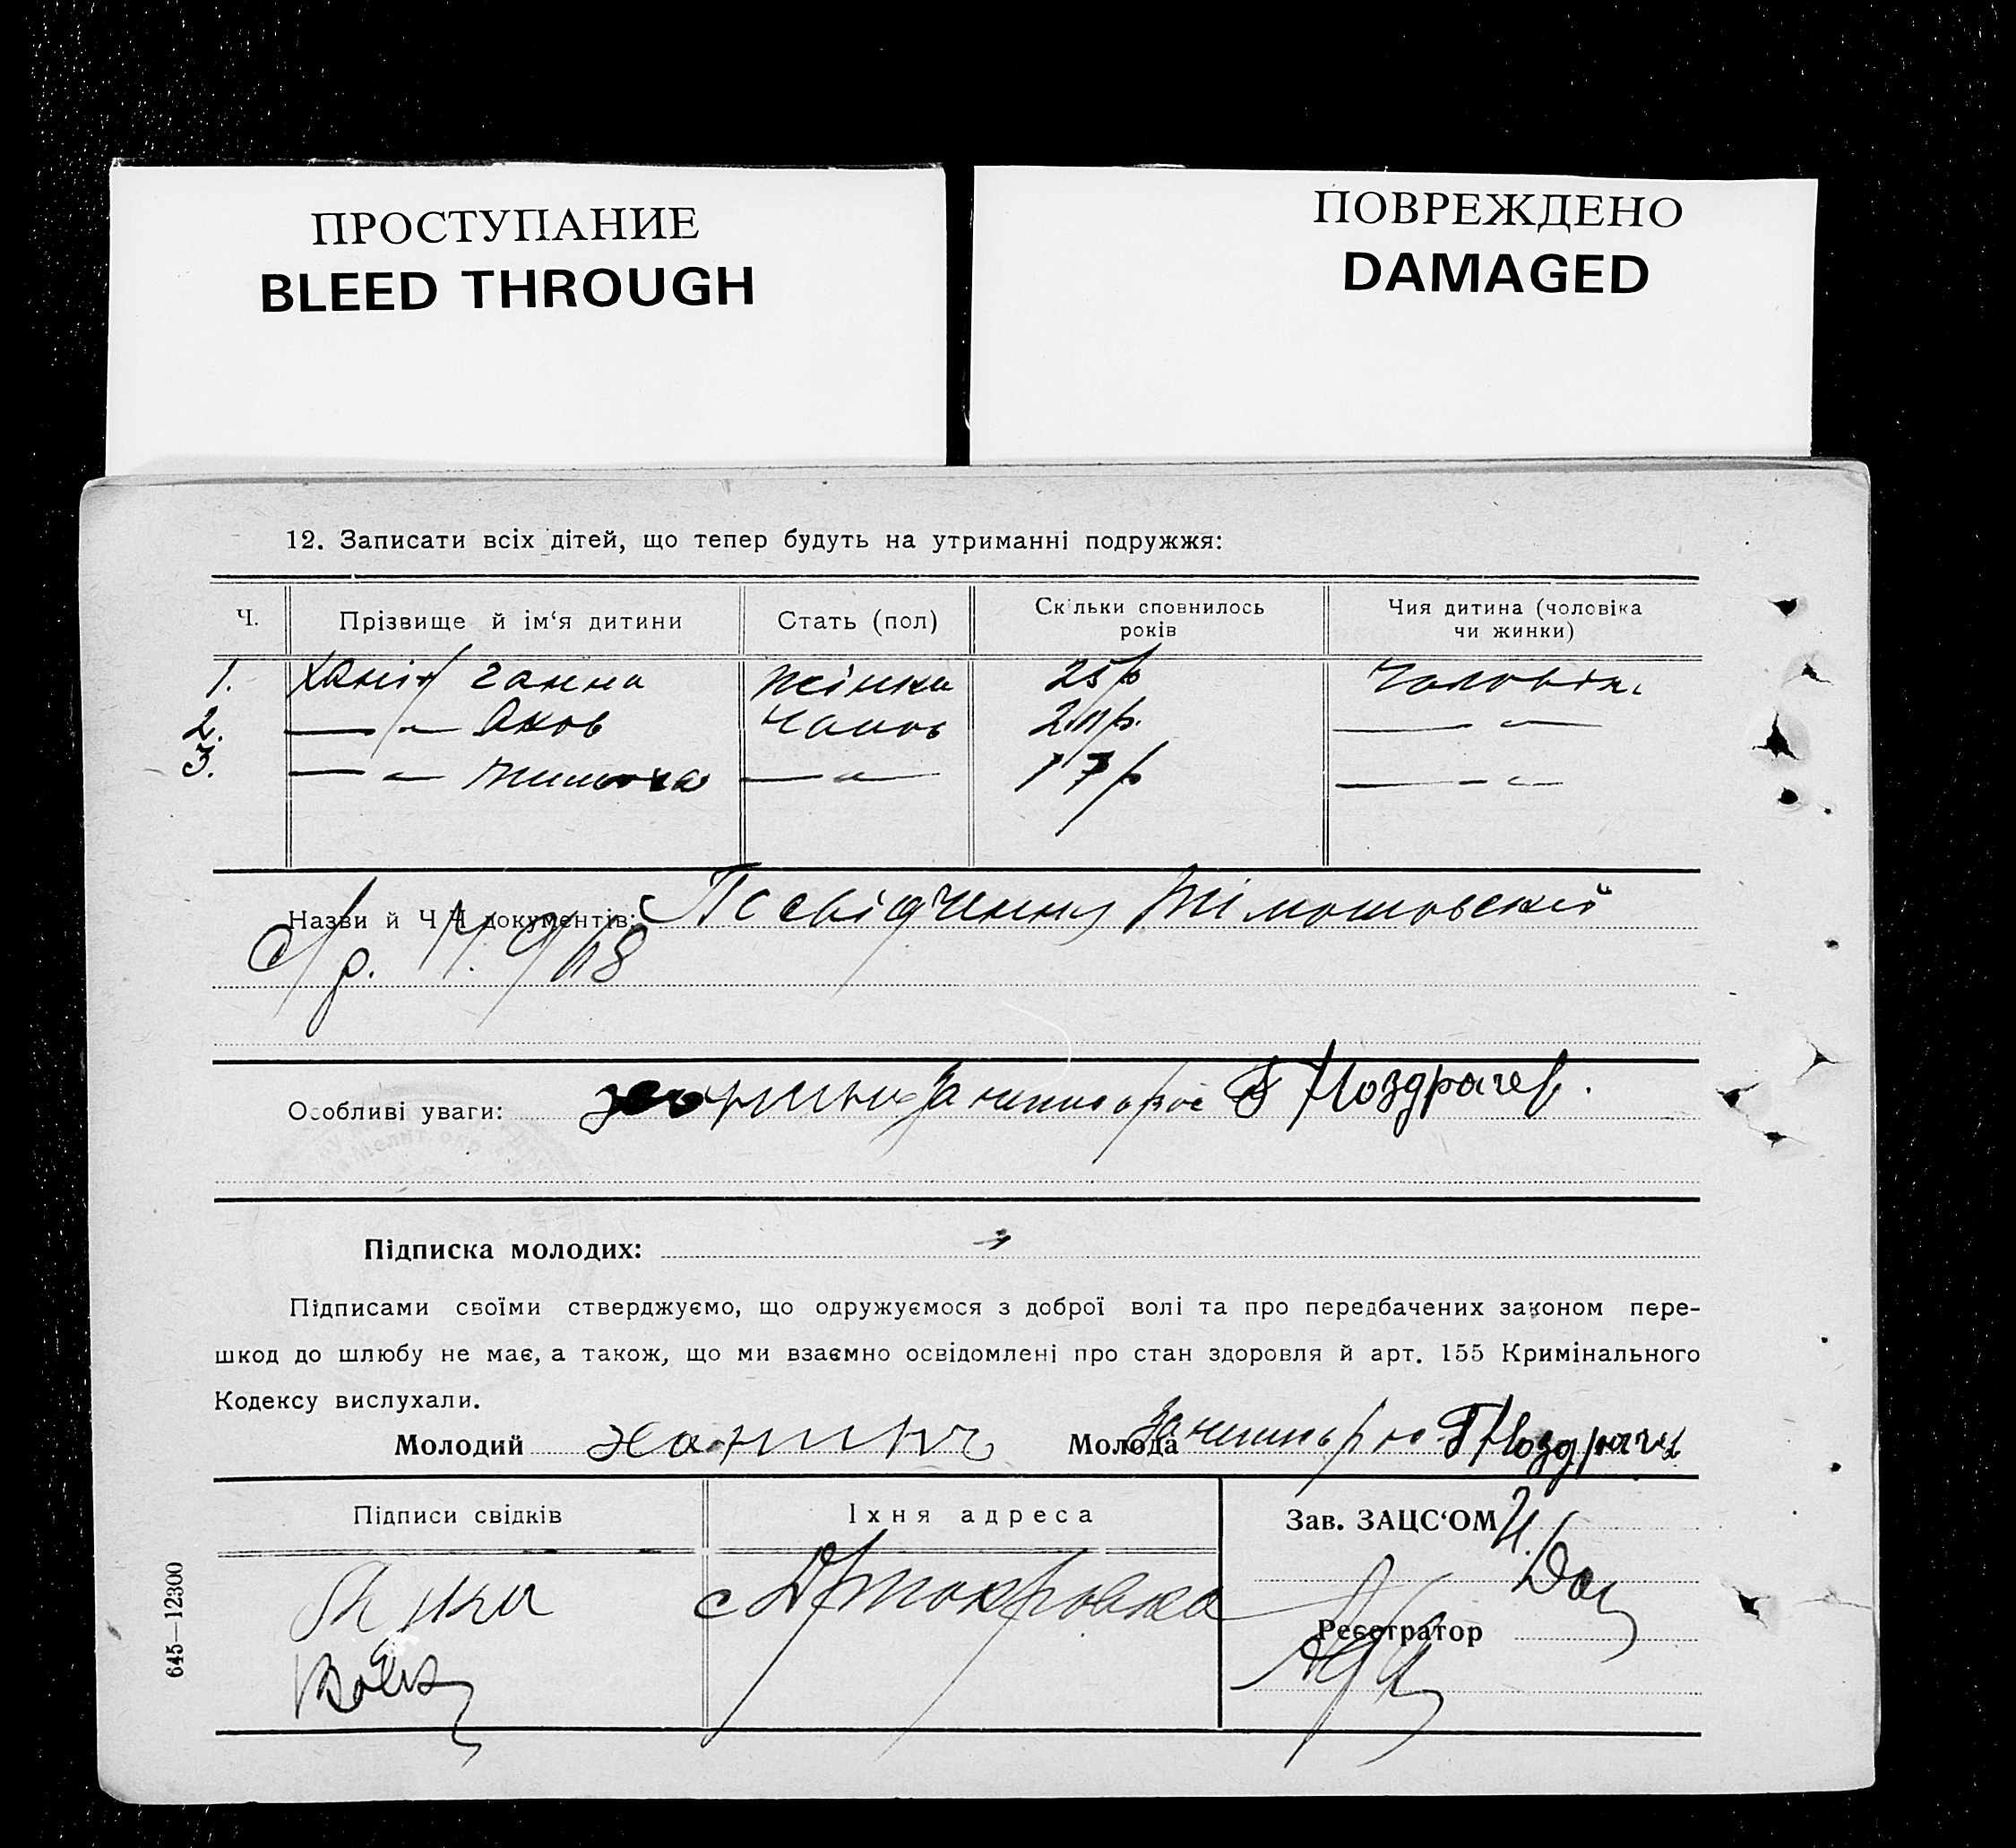 ПРОСТУПАНИЕ
BLEED THROUGH
ПОВРЕЖДЕНО
DAMAGED
12. Записати всіх дітей, що тепер будуть на утриманні подружжя:
Ч. Прізвище й ім‘я дитини Стать (пол) Скільки сповнилось років Чия дитина (чоловіка чи жинки)
1. Ханін Ганна жінка 25 р Чоловік.
2. — „ — Яков Чолов 21 р. — „ —
3. — „ — — „ — 17 р — „ —
Назви й Ч Ч документів: Посвідчення Тімошовский
С/р. 968
Особливі уваги: за Г Ноздрачев.
Підписка молодих:
Підписами своїми стверджуємо, що одружуємося з доброї волі та про передбачених законом пере-
шкод до шлюбу не має, а також, що ми взаємно освідомлені про стан здоровля й арт. 155 Кримінального
Кодексу вислухали.
Молодий Ханин Молода за Г Ноздрачев
Підписи свідків Їхня адреса Зав. ЗАЦС‘ОМ
с
Реєстратор
645—12300